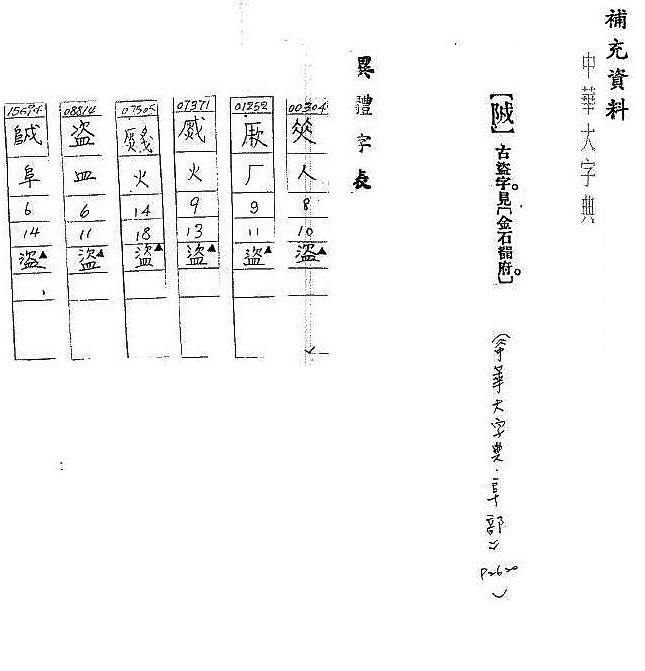 補充資料
中華大字典
【䧅】古盜字。見〔金石韻府。〕
(中華大字典.阜部六 P2620)
異體字表
00304 人 8 10 盜▲
01252 厥 厂 9 11 盜▲
07371 烕 火 9 13 盜▲
07505 火 14 18 盜▲
08814 盗 皿 6 11 盜▲
15694 阜 6 14 盜▲